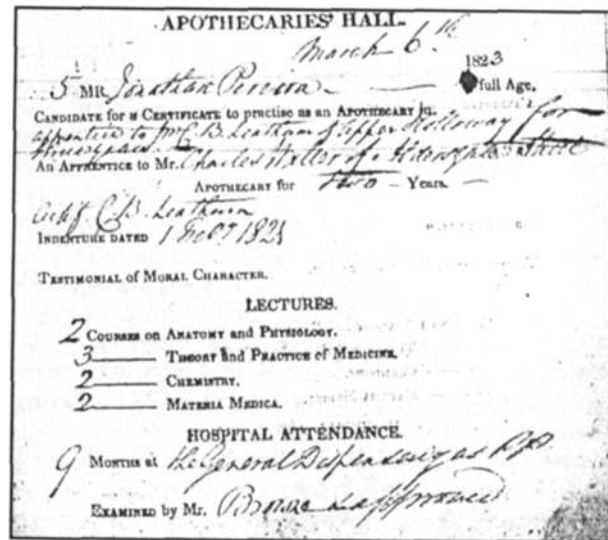 APOTHECARIES' HALL.
March 6.th
1823
5 MR Jonathan Pereira full Age.
CANDIDATE for a CERTIFICATE to practise as an APOTHECARY
apprentice to Mr C. B. Leatham of Upper Holloway for
AN APPRENTICE to MR. Charles Waller of Street
APOTHECARY for two Years.
C. B. Leatham
INDENTURE DATED 1 Feby 1821
TESTIMONIAL of MORAL CHARACTER.
LECTURES.
2 COURSES on ANATOMY and PHYSIOLOGY.
3 THEORY and PRACTICE of MEDICINE.
2 CHEMISTRY.
2 MATERIA MEDICA.
HOSPITAL ATTENDANCE.
9 MONTHS at the General Dispensary as
EXAMINED by MR. Browne & approved